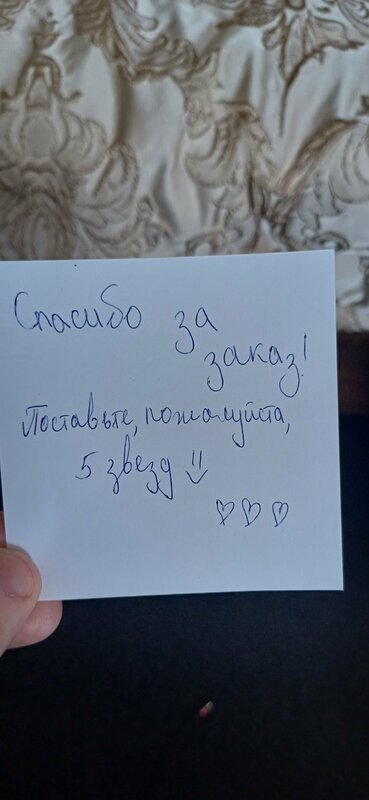 Спасибо за
заказ!
Поставьте, пожалуйста,
5 звезд